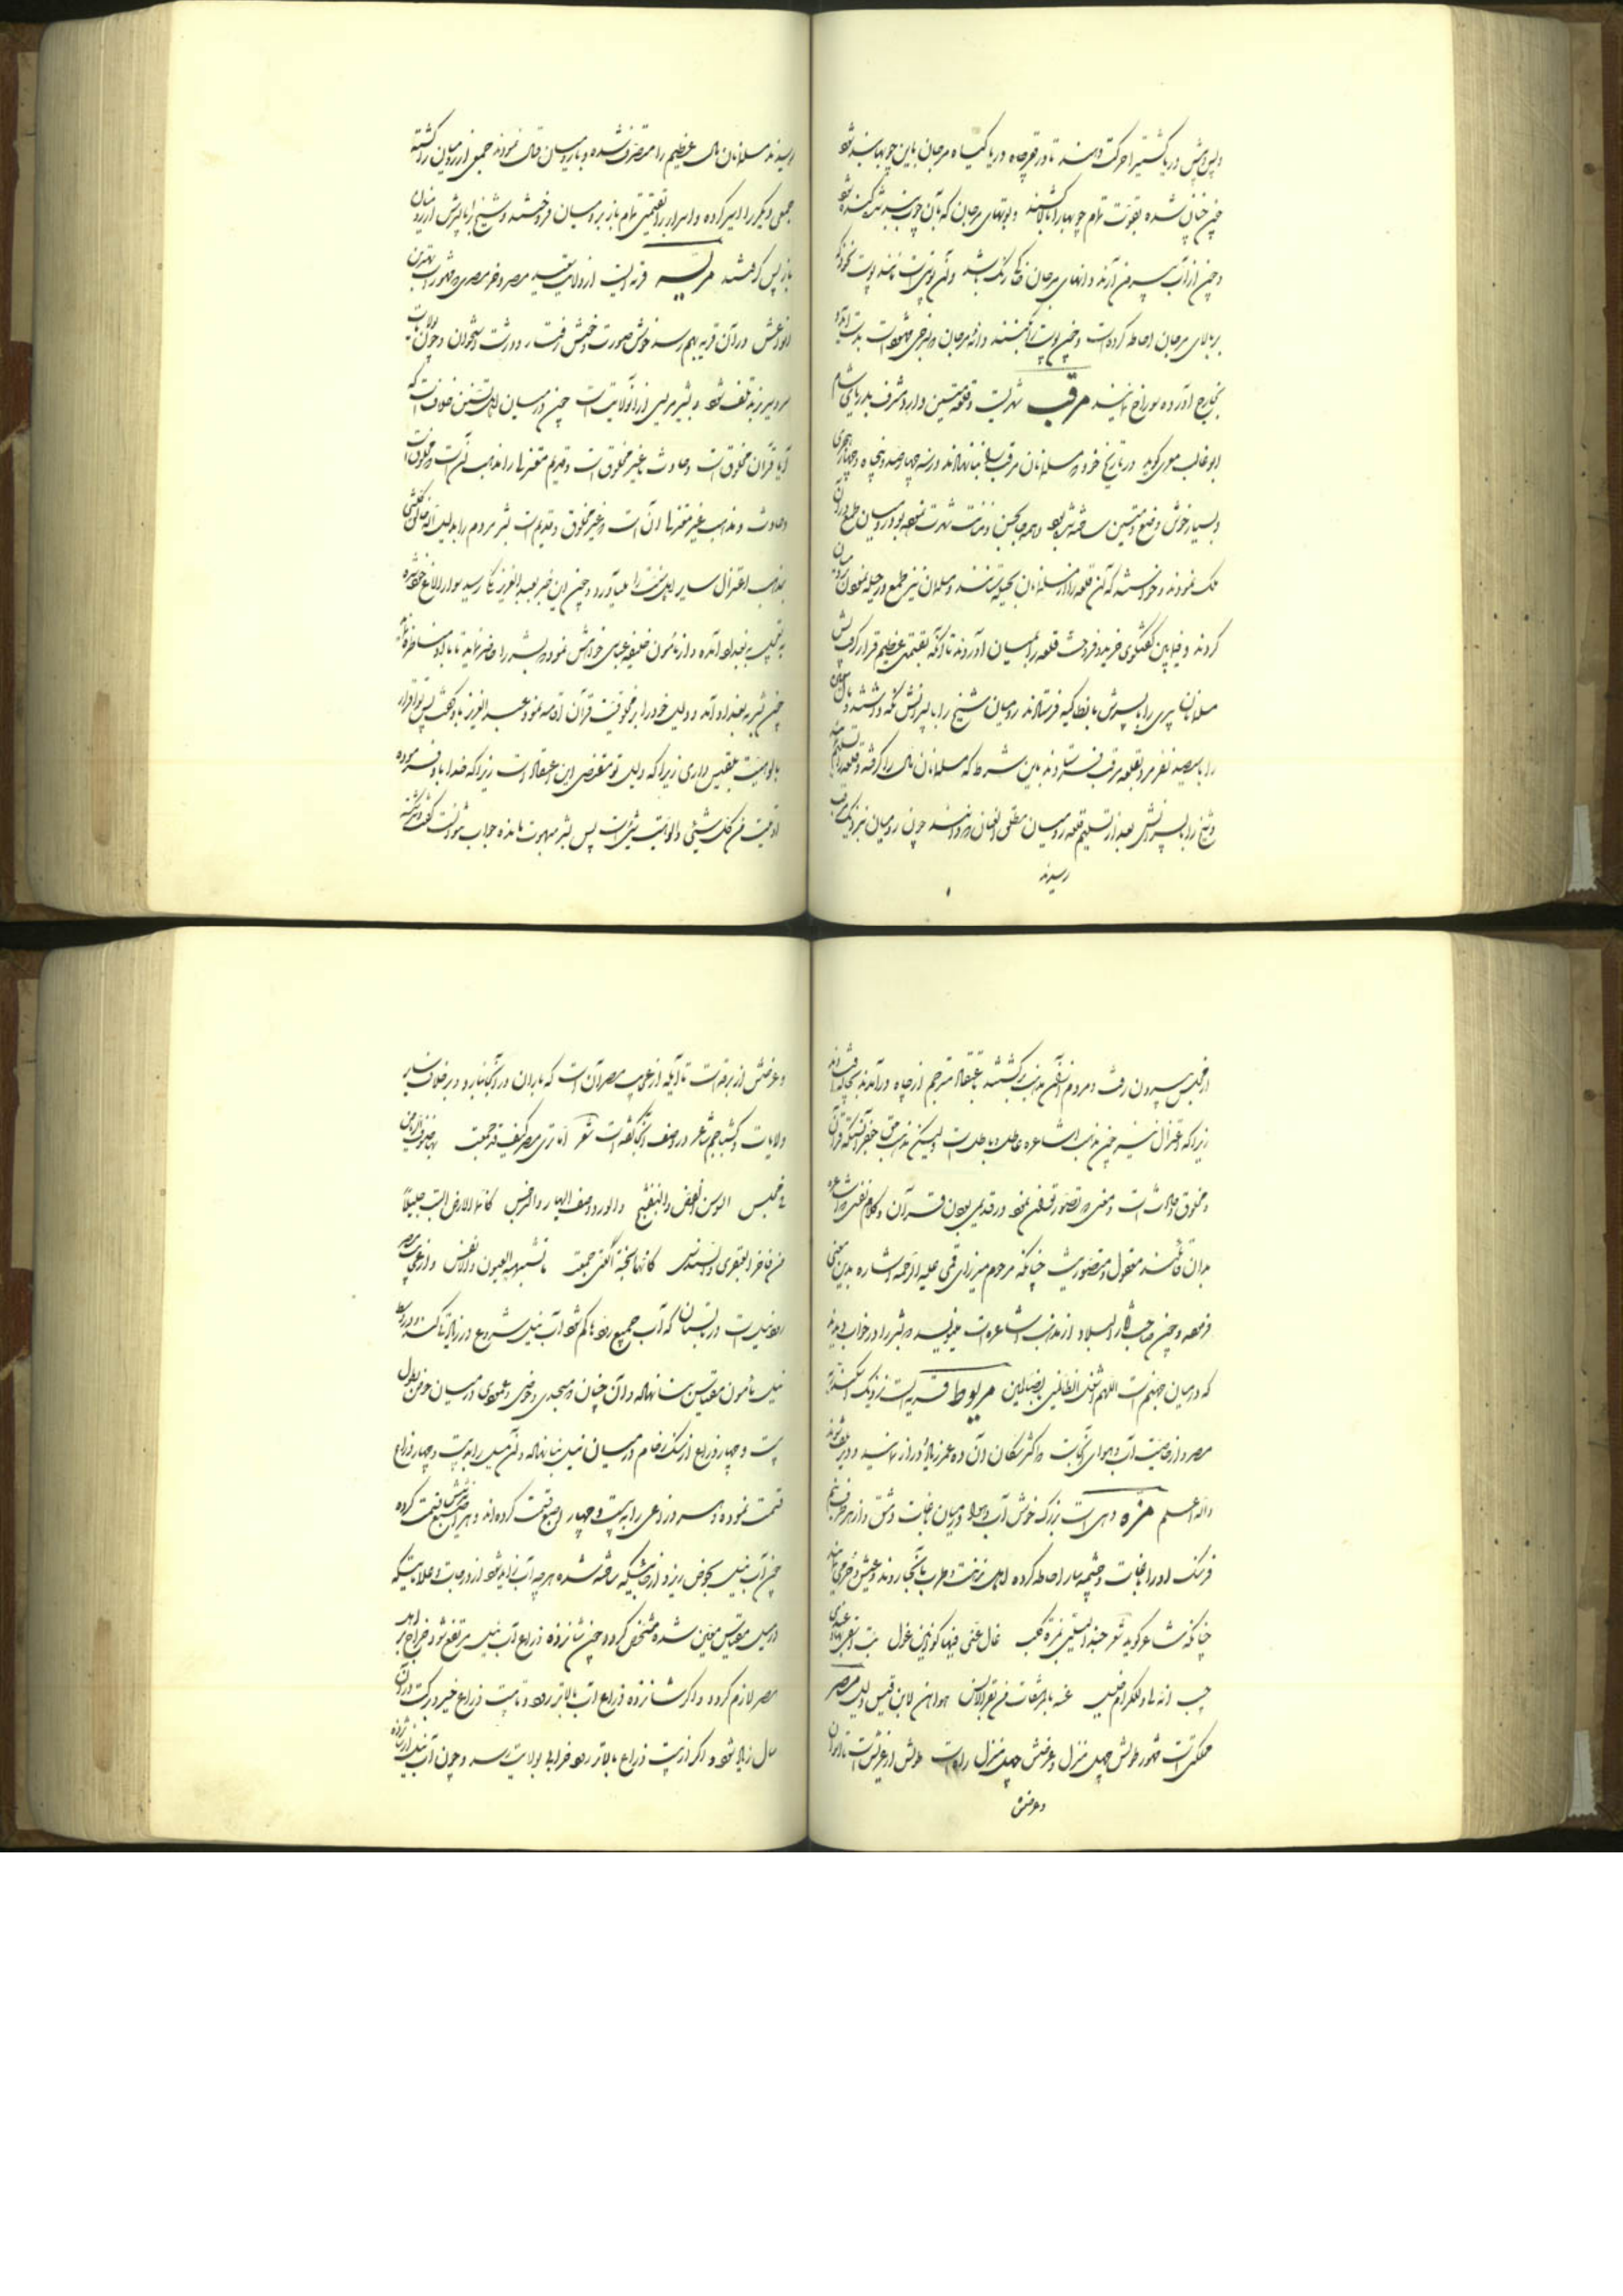 و پس و پیش در دریا کشتیرا حرکت دهند تا در قعر چاه دریا گیاه مرجان باین چوبها بند شود
چون چنان شده بقوت تمام چوبها را بالا کشند و بوتهای مرجان که بآن چوب بند شد کنده شود
و چون از آب بیرون آرند دانهای مرجان خاکی رنگ باشد و آن پوستی است مانند پوست
بر بالای مرجان احاطه کرده است و چون پوست را بکنند دانه مرجان سرخی مشهود است
بخارج آورده سوراخ نمایند مرقب شهریست و قلعه متین دارد و مشرف بدریای شام
ابو غالب معری گوید در تاریخ خود که مسلمانان مرقب را بنا نهادند در سنه چهار صد و پنجاه و چهار هجری
و بسیار خوش وضع و متین ساخته شده بود و همه جا بحسن و متانت شهرت نموده بود رومیان طمع در آن
ملک نمودند و خواستند که آن قلعه را از مسلمانان بحیله بستانند و مسلمانان نیز طمع در حیله نمودن رومیان
کردند و فیمابین گفتگوی خرید و فروخت قلعه را بمیان آوردند تا آنکه بقیمتی عظیم قرار گرفت پس
مسلمانان پیری را با پسرش بانطاکیه فرستادند رومیان شیخ را با پسرانش نگه داشتند و مال
را با سیصد نفر مرد بقلعه مرقب فرستادند باین شرط که مسلمانان مال را گرفته و قلعه را تسلیم
و شیخ را با پسرانش بعد از تسلیم قلعه رومیان مطلق العنان دانند چون رومیان بنزدیک مرقب
رسیدند
رسیدند مسلمانان مال عظیم را متصرف شده و با رومیان قتال نمودند جمعی از رومیان را کشته
جمعی دیگر را اسیر کرده و اسرا را بقیمتی تمام باز برومیان فروختند و شیخ را با پسرش از رومیان
باز پس گرفتند مریسه قریه ایست از ولایت صعید مصر و خر مصری که مشهور است بهترین
انواعش در آن قریه بهم رسد خوش صورت و خوش رفتار و درشت استخوان و چون بولایات
سردسیر برند تلف شود و بشر مریسی از آنولایت است چون در میان اهل تسنن خلاف است که
آیا قرآن مخلوق است و حادث یا غیر مخلوق است و قدیم معتزلها را مذهب آنست که مخلوق است
و حادث و مذهب غیر معتزلها آن است که غیر مخلوق و قدیم است بشر مردم را بدلیل
بمذهب اعتزال سایر اهل سنت را میآورد و چون این خبر بعبد العزیز مکی رسید سوار الاغ خود شده
به تعجیل به بغداد آمده و از مامون خلیفه عباسی خواهش نمود که بشر را حاضر نماید تا با او مناظره نماید
چون بشر به بغداد آمد و دلیل خود را بر مخلوقیت قرآن اقامه نمود عبد العزیز باو گفت پس تو اقرار
بالوهیت بلقیس داری زیرا که دلیل تو مقتضی این اعتقاد است زیرا که خدا باو فرموده
اوتیت من کل شیئی و الوهیت شئی است پس بشر مبهوت مانده جواب نتوانست گفت و
از مجلس بیرون رفت و مردم از آن مذهب برگشتند باعتقاد مترجم از چاه در آمدند بچاله افتادند
زیرا که اعتزال نیز چون مذهب اشاعره عاطل و باطل است ولیکن مذهب حق جعفر آنستکه قرآن
مخلوق و حادث است و معنی که تصور توان نمود در قدیمی بودن قرآن و کلام نفسی که اشاعره
بدان قائلند معقول و متصور نیست چنانکه مرحوم میرزای قمی علیه الرحمه اشاره بدین معنی
فرموده و چون صاحب آثار البلاد از مذهب اشاعره است میفرماید که بشر را در خواب دیدند
که در میان جهنم است اللهم اشغل الظالمین بالظالمین مریوط قریه ایست نزدیک اسکندریه
مصر و از خاصیت آب و هوای آنجاست که اکثر ساکنان آن ده عمر زیاد دراز نمایند و دیر تلف شوند
والله اعلم مزه دهی است بزرگ خوش آب و هوا در میان باغات دمشق و از هر طرف نیم
فرسنگ او را باغات و چشمه سار احاطه کرده اهل نزهت و طرب بآنجا روند و عیش و خرمی نمایند
چنانکه شاعر گوید شعر
مصر
مملکتی است مشهور طولش چهل منزل و عرضش چهل منزل راه است طولش از عریش است تا اسوان
و عرضش
و عرضش از برقه است تا ایله از غرایب مصر آن است که باران در آنجا نبارد و بر خلاف سایر
ولایات و کشاجم شاعر در وصف آنجا گفته است شعر اما تری مصر کیف قد جمعت بها صنوف الریاحین
فی مجلس السوسن الغض و البنفسج و الورد و صنف البهار و النرجس کانها الارض البست حللا
من فاخر العبقری و السندس کانها الجنة التی جمعت ما تشتهیه العیون و الانفس و از غرایب مصر
رود نیل است در تابستان که آب جمیع رودها کم شود آب نیل شروع در زیادتی کند و در وسط
نیل مامون مقیاس بنا نهاده و آن چنان که مسجدی و حوضی و عمودی در میان حوض بطول
بیست و چهار ذراع از سنگ رخام در میان نیل بنا نهاده و آن میل را به بیست و چهار ذراع
قسمت نموده و هر ذراعی را به بیست و چهار اصبع قسمت کرده اند و هر اصبع را قسمت کرده
چون آب نیل بحوض ریزد از جائیکه ساخته شده هرچه آب زیاد شود از درجات و علاماتیکه
از میل مقیاس معین شده مشخص گردد چون شانزده ذراع آب نیل مرتفع شود خراج بر اهل
مصر لازم گردد و اگر شانزده ذراع آب بالاتر رود تا بیست ذراع خیر و برکت در آن
سال زیاد شود و اگر از بیست ذراع بالاتر رود خرابی بولایت رسد و چون آب نیل از شانزده